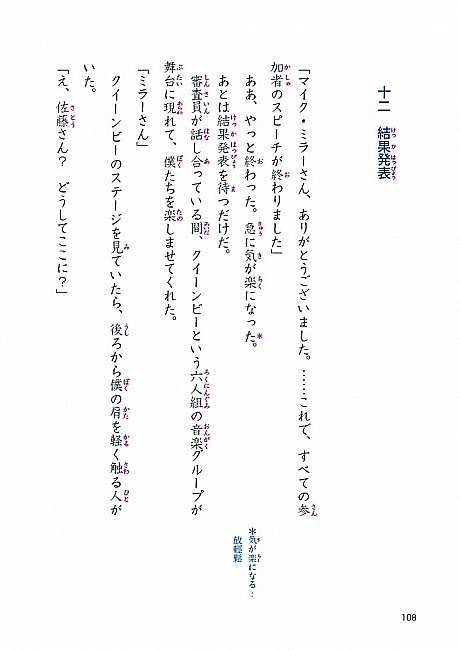 十二　結果発表
「マイク・ミラーさん、ありがとうございました。……これで、すべての参
加者のスピーチが終わりました」
ああ、やっと終わった。急に気が楽になった。
あとは結果発表を待つだけだ。
審査員が話し合っている間、クイーンビーという六人組の音楽グループが
舞台に現れて、僕たちを楽しませてくれた。
「ミラーさん」
クイーンビーのステージを見ていたら、後ろから僕の肩を軽く触る人が
いた。
「え、佐藤さん？　どうしてここに？」
＊気が楽になる：
放輕鬆
108